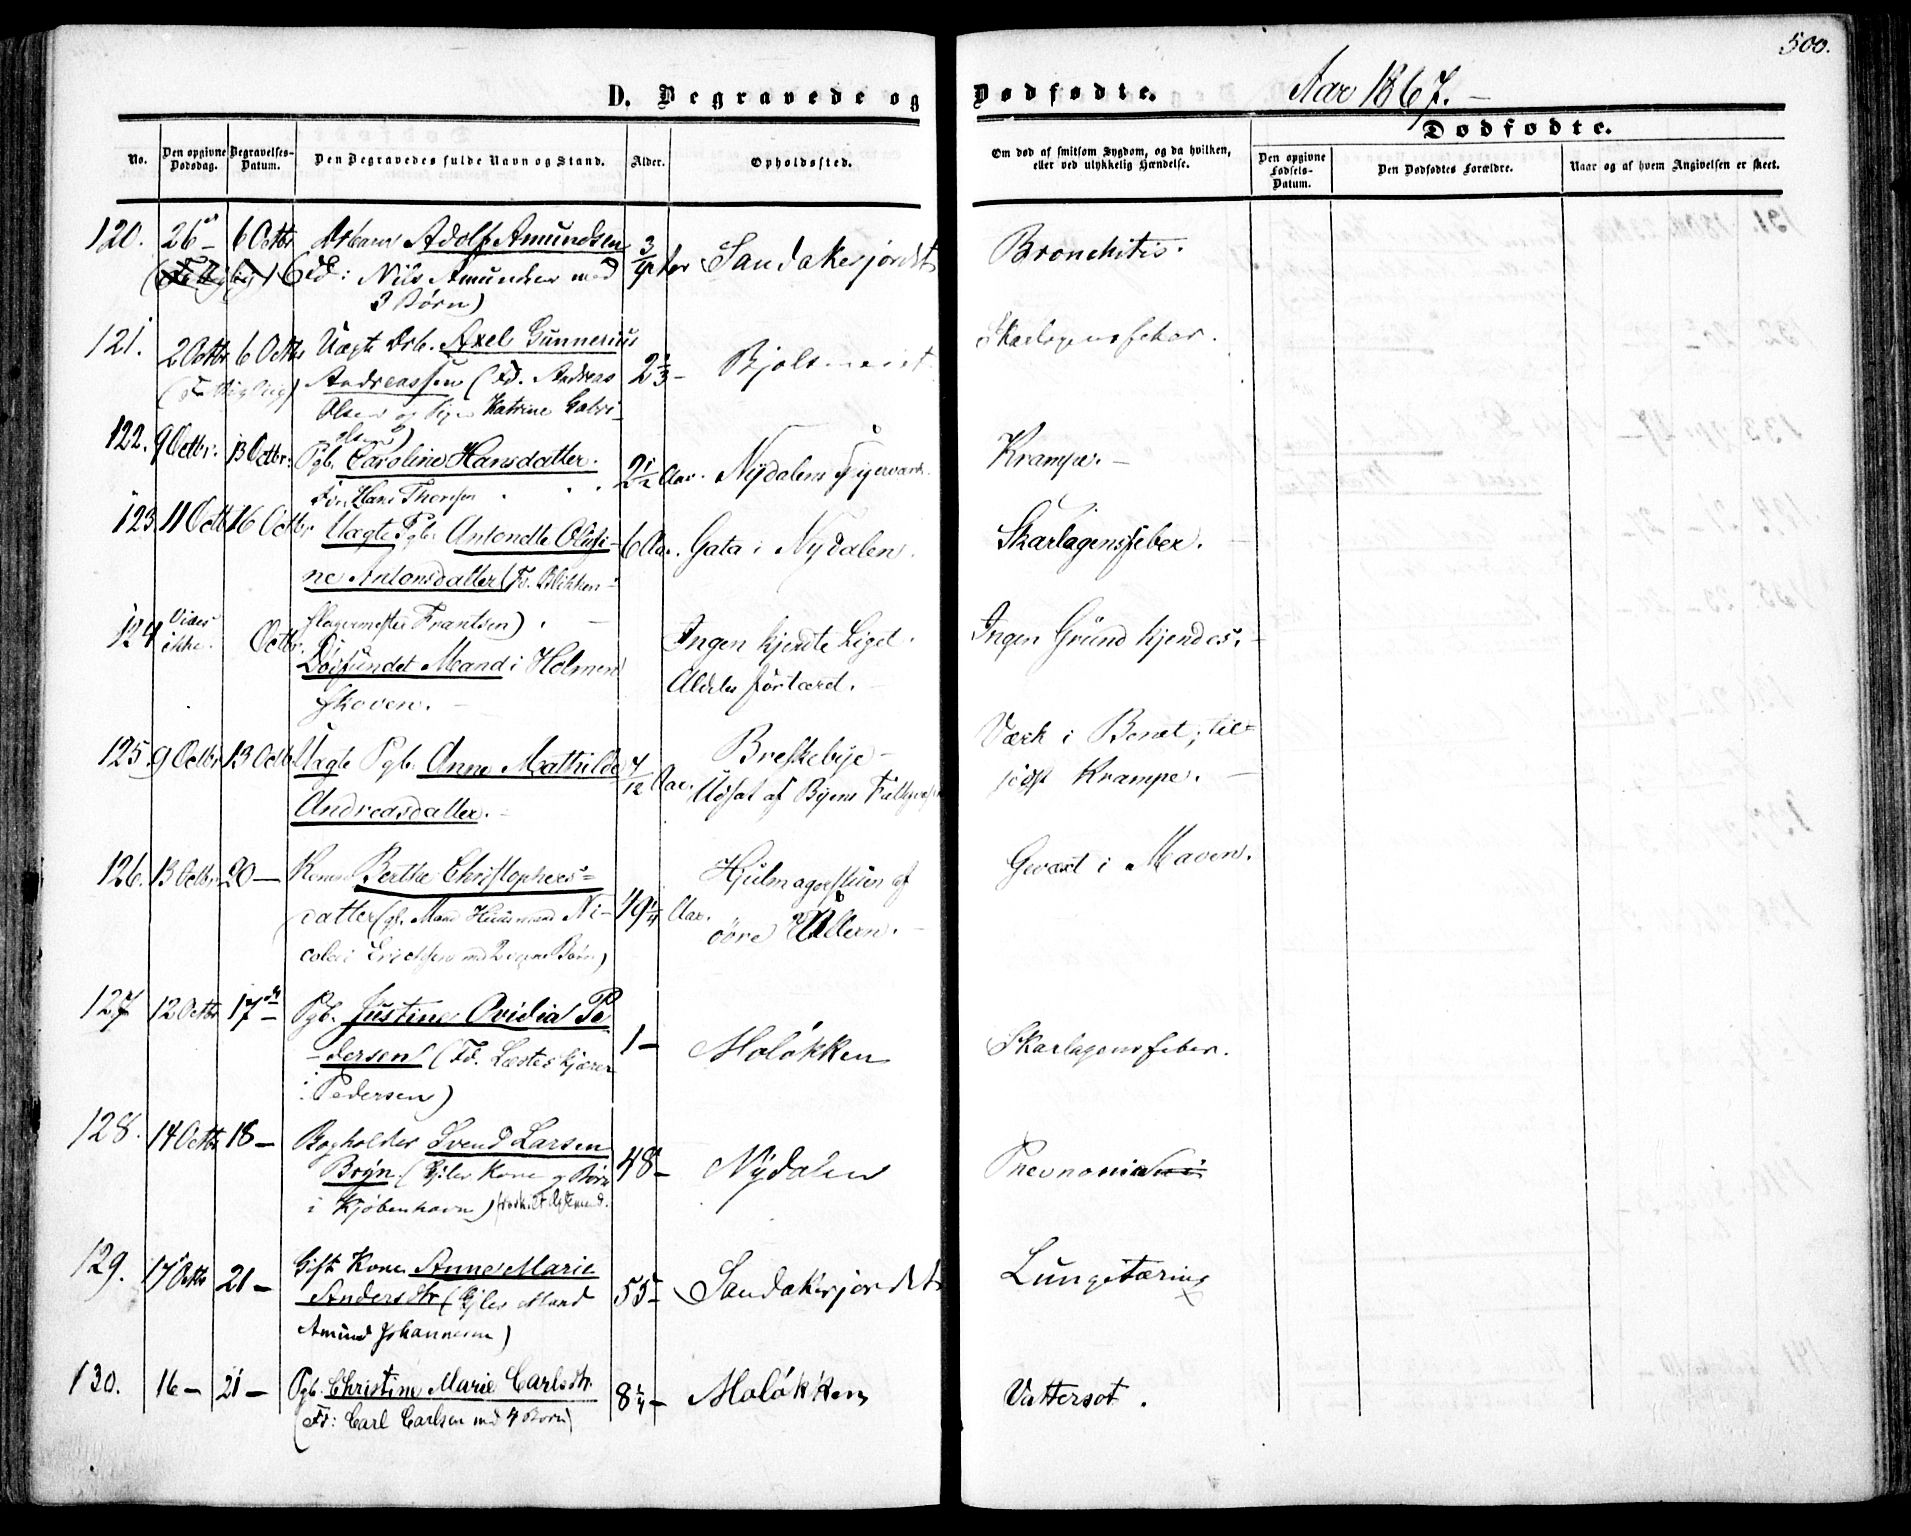 500.
D. Begravede og Dødfødte. Aar 1867.
Dødfødte.
No. Den opgivne Dødsdag. Begravelses-Datum. Den Begravedes fulde Navn og Stand. Alder. Opholdssted. Om død af smitsom Sygdom, og da hvilken, eller ved ulykkelig Hændelse. Den opgivne Fødsels-Datum. Den Dødfødtes Forældre. Naar og af hvem Angivelsen er skeet.
120. 26 6 Octbr Adolf Amundsen 3/4 Aar Sandakerjordet Bronchitis.
Fd: Nils Amundsen med
3 Børn)
121. 2 Octbr 6 Octbr Uægte Drb. Axel Gunnerius 2 1/3 - Skarlagensfeber.
Andreassen (Fd. Andreas
Olsen og Pige Katrine Gabri-
elsen)
122. 9 Octbr. 13 Octbr. Pgb. Caroline Hansdatter. 2 1/2 Aar. Nydalens Krampe. -
For. Hans Thomsen
123 11 Octb 16 Octbr Uægte Pgb. Antonette Olufi- 6 Aar. Gata i Nydalen. Skarlagensfeber.
ne Antonsdatter (Fd. Blikken-
slagermester Frantsen).
124 Vides ikke. Octbr. Dødfundet Mand i Holmen Ingen kjendte Liget. Ingen Grund kjendes. -
skoven. Aldeles fortæret. -
125 9 Octbr 13 Octb Uægte Pgb. Anne Mathilde 7/12 Aar. Breskebye - Værk i Benet, til-
Andreasdatter. Udsat af Byens sidst Krampe. -
126. 13 Octbr. 20 - Kone Berthe Christophers- 49 1/4 Aar. Gevæxt i Maven.
datter (gl. Mand Huusmand Ni-
colai Ericksen med 2 Børn) øvre Ullern.
127 12 Octbr 17 Pgb. Justine Ovidia Pe- 1 - Moløkken Skarlagensfeber.
dersen (Fd.
Pedersen)
128. 14 Octbr 18 - Bogholder Svend Larsen 48 - Nydalen
Brÿn (Efter Kone og Børn
i Kjøbenhavn)
129. 17 Octbr 21 - Gift Kone Anne Marie 55 - Sandakerjordet Lungetæring
Andersdtr (Efter Mand
Amund Johannesen)
130. 16 - 21 - Pgb. Christine Marie Carlsdtr. 8 1/4 - Moløkken Vattersot.
(Fd: Carl Carlsen med 4 Børn)